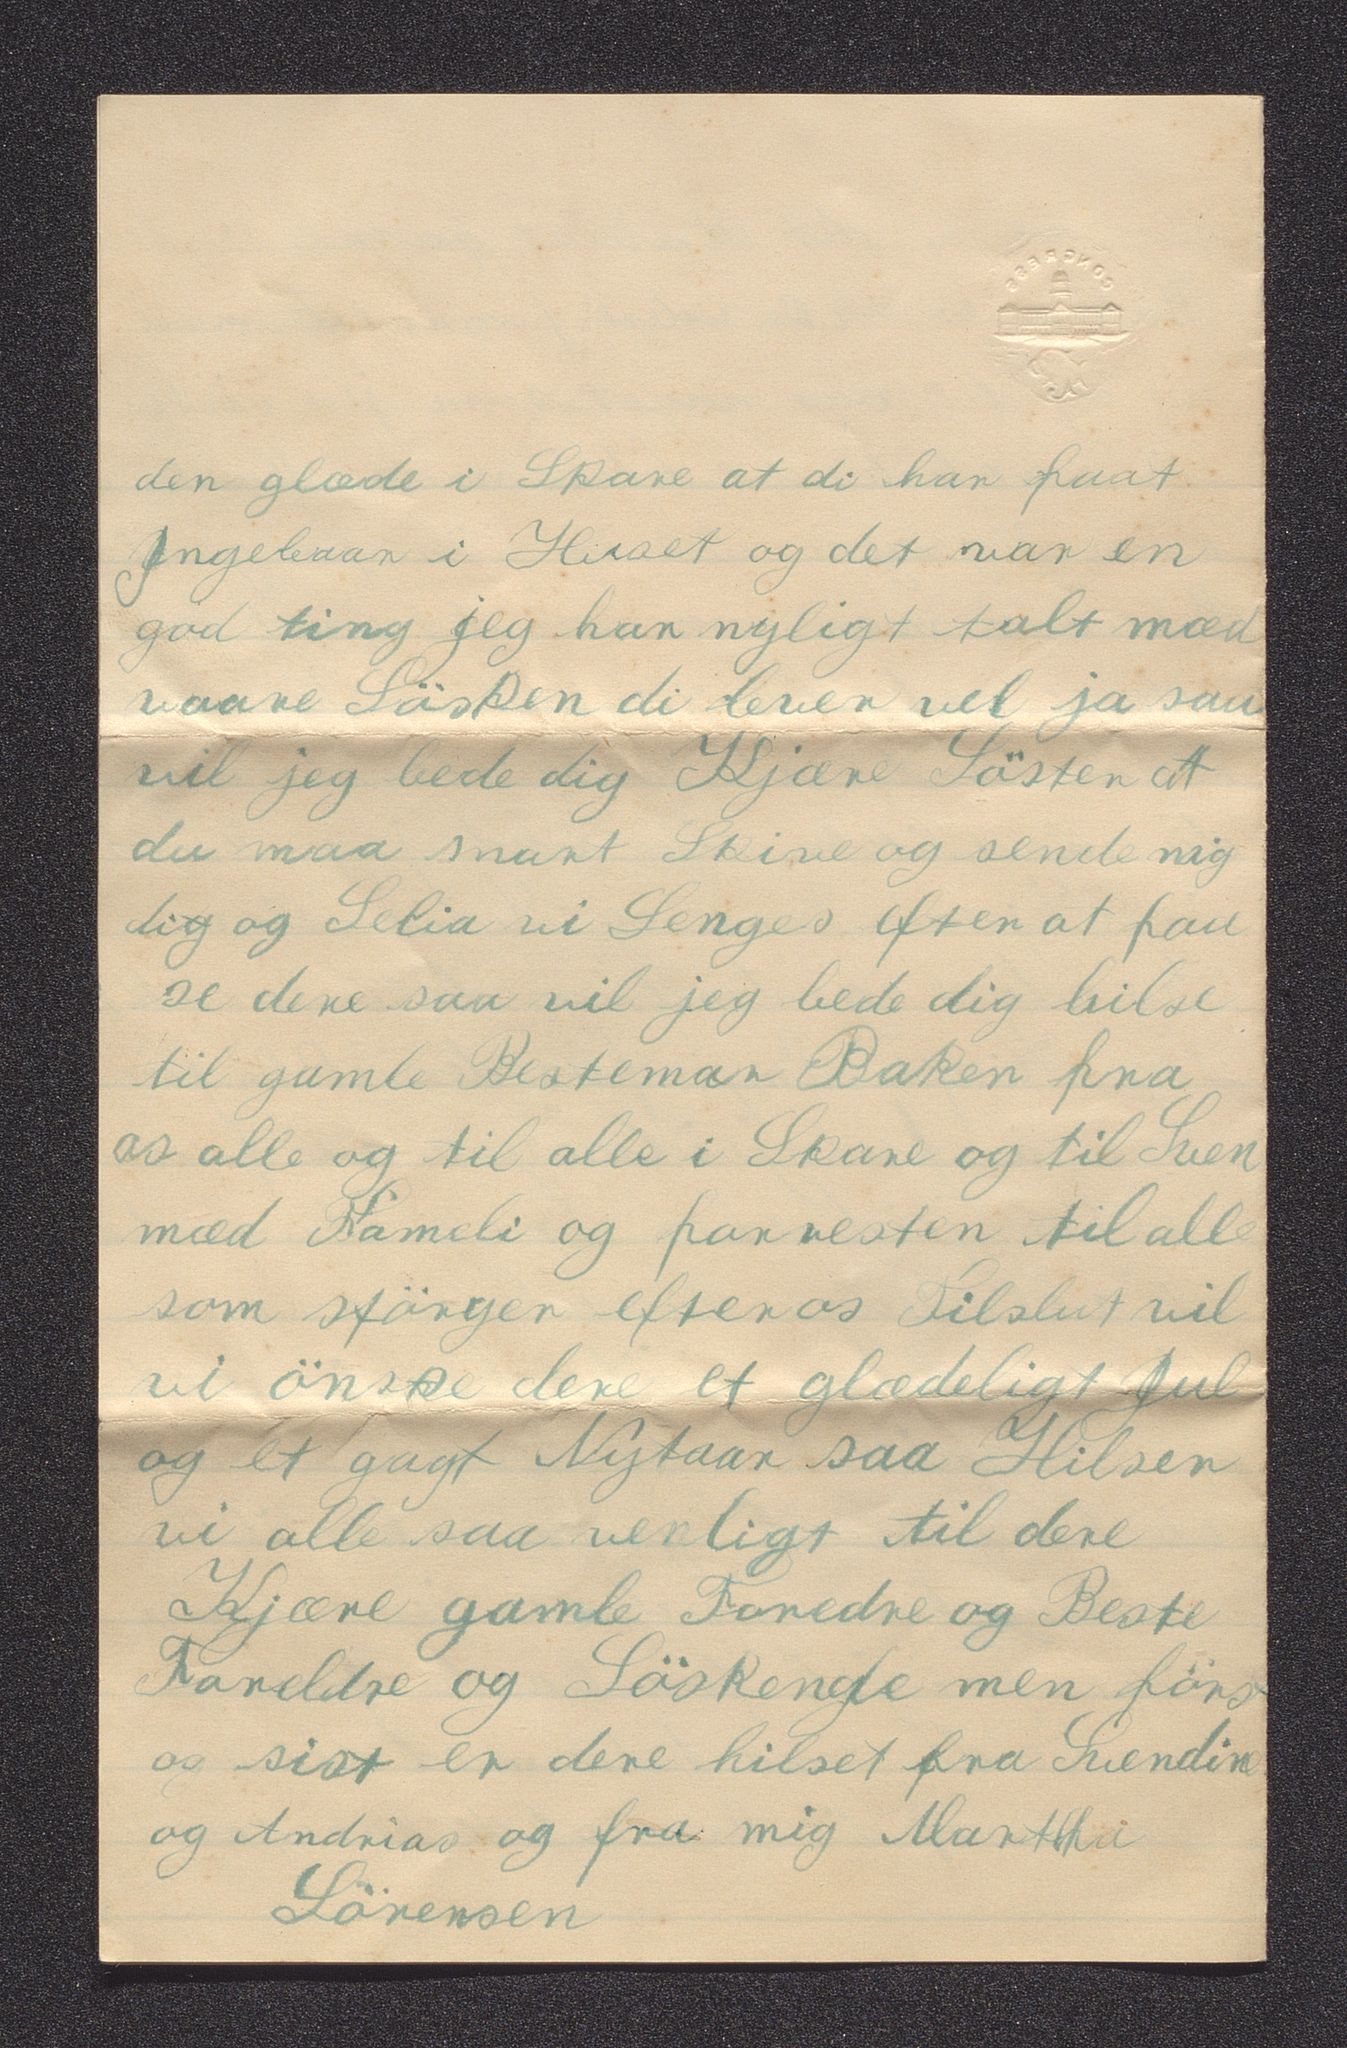 CONGRESS
den glæde i Skare at di har faat
Ingebaar i Huset og det var en
god ting jeg har nyligt talt mæd
vaare Søsken di lever vel ja saa
vil jeg bede dig Kjære Søster at
du maa snart Skive og sende mig
dig og Selia vi Lenges efter at faa
se dere saa vil jeg bede dig hilse
til gamle Bestemar Baken fra
os alle og til alle i Skare og til Sven
mæd Fameli og forresten til alle
som spörger efter os Tilslut vil
vi önske dere et glædeligt Jul
og et gagt Nytaar saa Hilser
vi alle saa venligt til dere
Kjære gamle Foredre og Beste
Foreldre og Söskende men förs
og sist er dere hilset fra Svendine
og Andrias og fra mig Martha
Sörensen